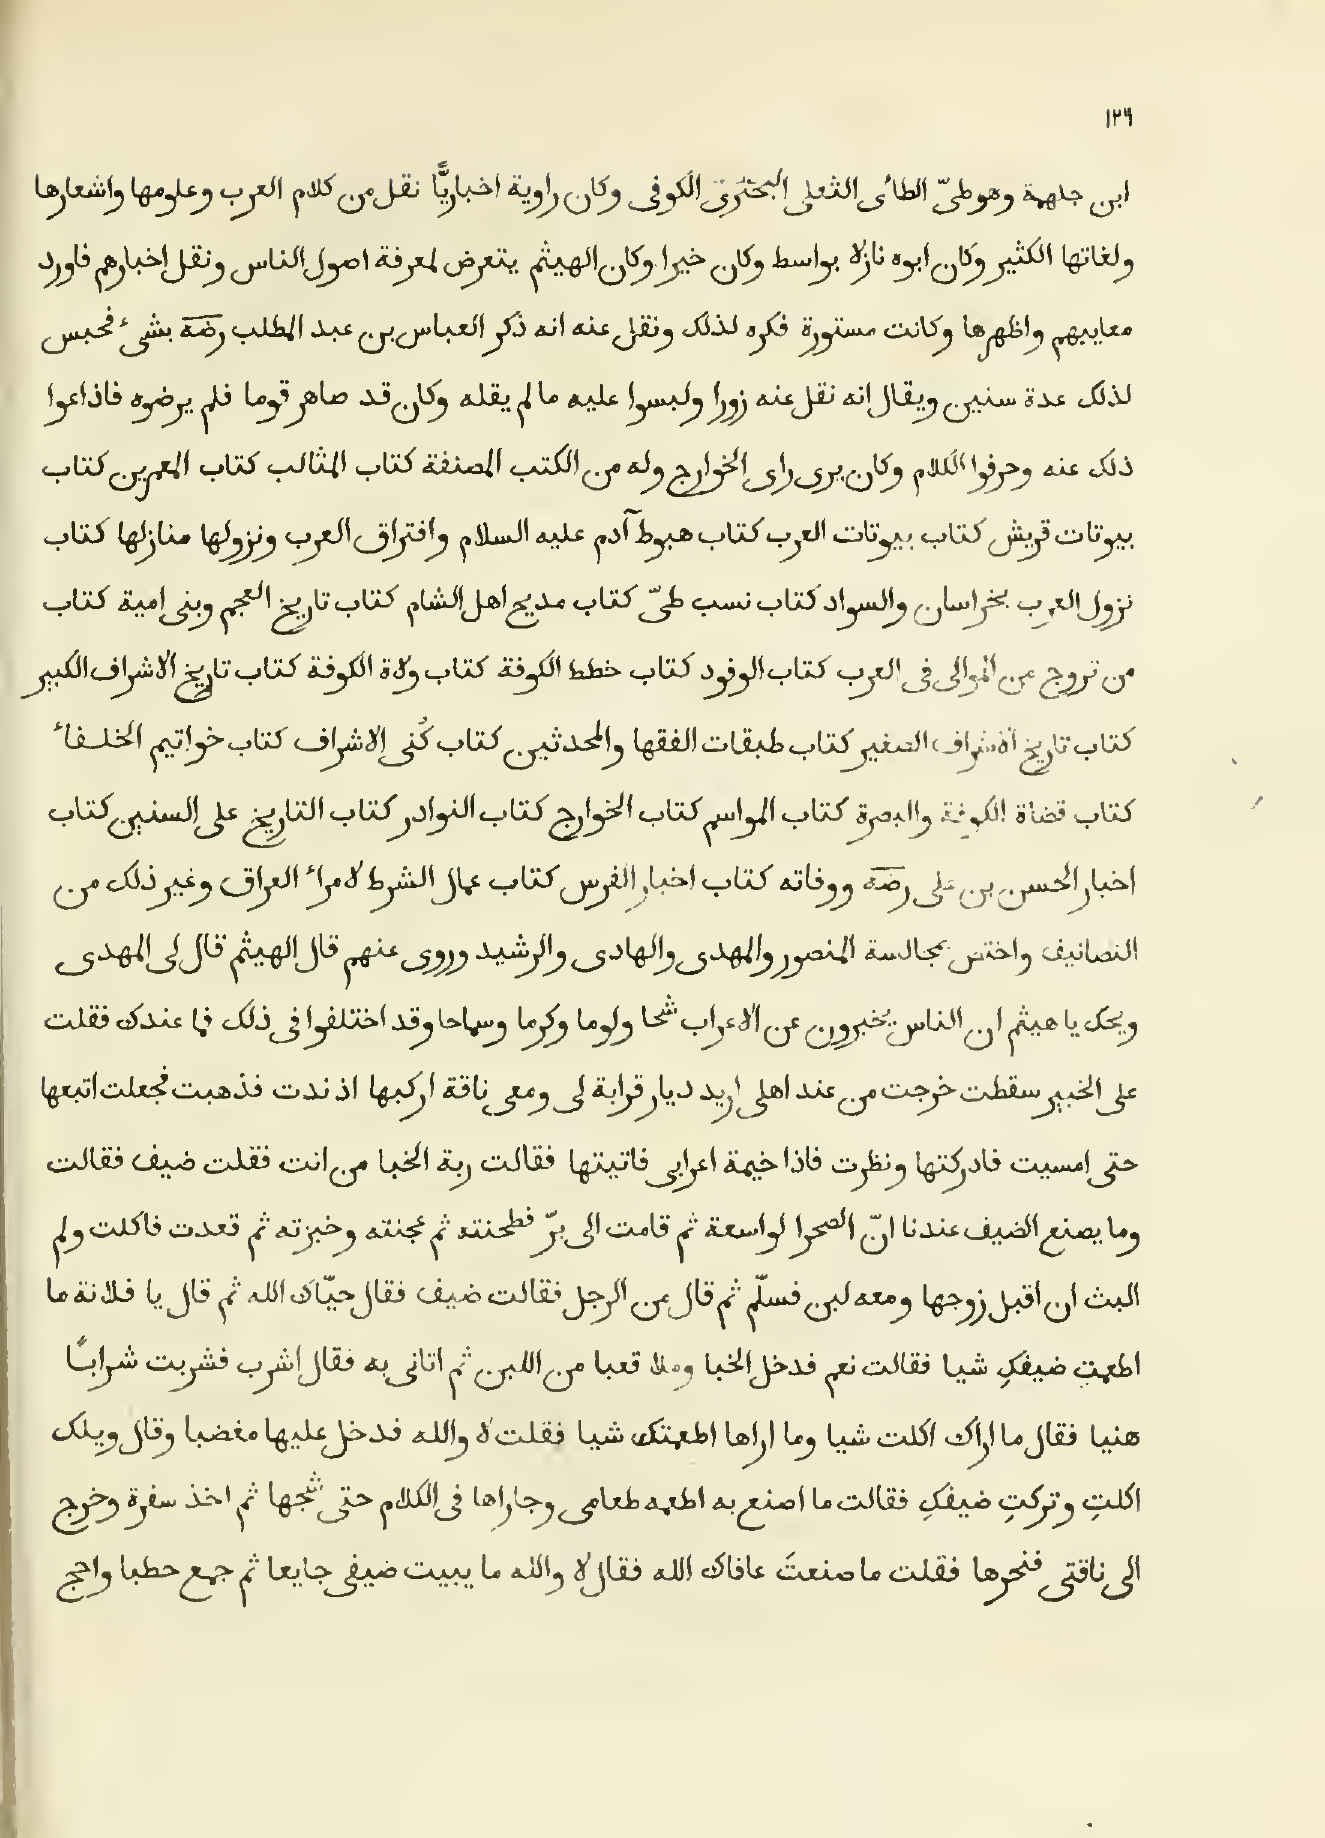 ١٢٦
ابن جلهمة وهو طىّ الطاءى الثعلى البحترى الكوفى وكان راوية اخباريًّا نقل من كلام العرب وعلومها واشعارها
ولغاتها الكثير وكان ابوه نازلا بواسط وكان خيرا وكان الهيثم يتعرض لمعرفة اصول الناس ونقل اخبارهم فاورد
معاييهم واظهرها وكانت مستورة فكره لذلك ونقل عنه انه ذكر العباس بن عبد المطلب رضه بشىء فحبس
لذلك عدة سنين ويقال انه نقل عنه زورا ولبسوا عليه ما لم يقله وكان قد صاهر قوما فلم يرضوه فاذاعوا
ذلك عنه وحرفوا الكلام وكان يرى راى الخوارج وله من الكتب المصنفة كتاب المثالب كتاب المعمرين كتاب
بيوتات قريش كتاب بيوتات العرب كتاب هبوط آدم عليه السلام وافتراق العرب ونزولها منازلها كتاب
نزول العرب بخراسان والسواد كتاب نسب طىّ كتاب مديح اهل الشام كتاب تاريخ العجم وبنى امية كتاب
من تزوج من الموالى فى العرب كتاب الوفود كتاب خطط الكوفة كتاب ولاة الكوفة كتاب تاريخ الاشراف الكبير
كتاب تاريخ الاشراف الصغير كتاب طبقات الفقها والمحدثين كتاب كُنى الاشراف كتاب خواتيم الخلفاء
كتاب قضاة الكوفة والبصرة كتاب المواسم كتاب الخوارج كتاب النوادر كتاب التاريخ على السنين كتاب
اخبار الحسن بن على رضه ووفاته كتاب اخبار الفرس كتاب عمال الشرط لامراء العراق وغير ذلك من
التصانيف واختص بمجالسة المنصور والمهدى والهادى والرشيد وروى عنهم قال الهيثم قال لى المهدى
ويحك يا هيثم ان الناس يخبرون عن الاعراب شحا ولوما وكرما وسماحا وقد اختلفوا فى ذلك فما عندك فقلت
على الخبير سقطت خرجت من عند اهلى اريد ديار قرابة لى ومعى ناقة اركبها اذ ندت فذهبت فجعلت اتبعها
حتى امسيت فادركتها ونظرت فاذا خيمة اعرابى فاتيتها فقالت ربة الخبا من انت فقلت ضيف فقالت
وما يصنع الضيف عندنا انّ الصحرا لواسعة ثم قامت الى برّ فطحنته ثم عجنته وخبزته ثم قعدت فاكلت ولم
البث ان اقبل زوجها ومعه لبن فسلّم ثم قال من الرجل فقالت ضيف فقال حيّاك الله ثم قال يا فلانة ما
اطعمتِ ضيفكِ شيا فقالت نعم فدخل الخبا وملا قعبا من اللبن ثم اتانى به فقال اشرب فشربت شرابًا
هنيا فقال ما اراك اكلت شيا وما اراها اطعمتك شيا فقلت لا والله فدخل عليها مغضبا وقال ويلك
اكلتِ وتركتِ ضيفكِ فقالت ما اصنع به اطعمه طعامى وجاراها فى الكلام حتى شجها ثم اخذ سفرة وخرج
الى ناقتى فنحرها فقلت ما صنعتَ عافاك الله فقال لا والله ما يبيت ضيفى جايعا ثم جمع حطبا واجج